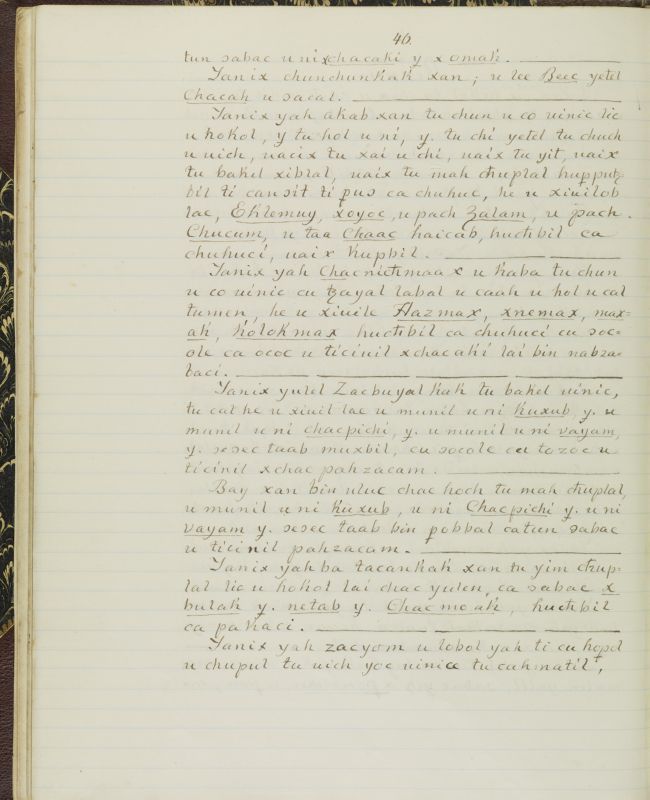 46.
tun sabac u ni xchacaki y x omak.
Yanix chunchunkak xan; u lee Beec yetel
Chacah u sacal.
Yanix yah akab xan tu chun u co uinic lic
u kokol, y tu hol u ni, y. tu chi yetel tu chuch
u uich, uacix tu xai u chi, uaix tu yit, uaix
tu bakel xiblal, uaix tu mah chuplal hupputz-
bil ti can sit ti pus ca chuhuc, he u xiuilob
lae, Eklemuy, xoyoc, u pach Zalam, u pach
Chucum, u taa Chaac haicab, huchbil ca
chuhuci, uaix kupbil.
Yanix yah Chacnichmaax u kaba tu chun
u co uinic cu tzayal labal u caah u hol u cal
tumen, he u xiuile Aazmax, xnemax, max-
ak, Kolokmax huchbil ca chuhuci cu soc-
ole ca ococ u ticinil xchacaki lai bin nabza-
baci.
Yanix yulel Zacbuyal kak tu bakel uinic,
tu cal he u xiuil lae u munil u ni kuxub, y. u
munil u ni chacpichi, y. u munil u ni vayam,
y. sesec taab muxbil, cu socole cu tozoc u
ticinil xchac pahzacam.
Bay xan bin uluc chac hoch tu mah chuplal,
u munil u ni kuxub, u ni Chacpichi y. u ni
vayam y. sesec taab bin pobbal catun sabac
u ticinil pahzacam.
Yanix yah ba tacankak xan tu yim chup-
lal lic u kokol lai chac yulen, ca sabac x
bulak y. netab y. Chacmoak, huchbil
ca pakaci.
Yanix yah zacyom u lobol yah ti cu hopol
u chupul tu uich yoc uinice tu cuhmatil,